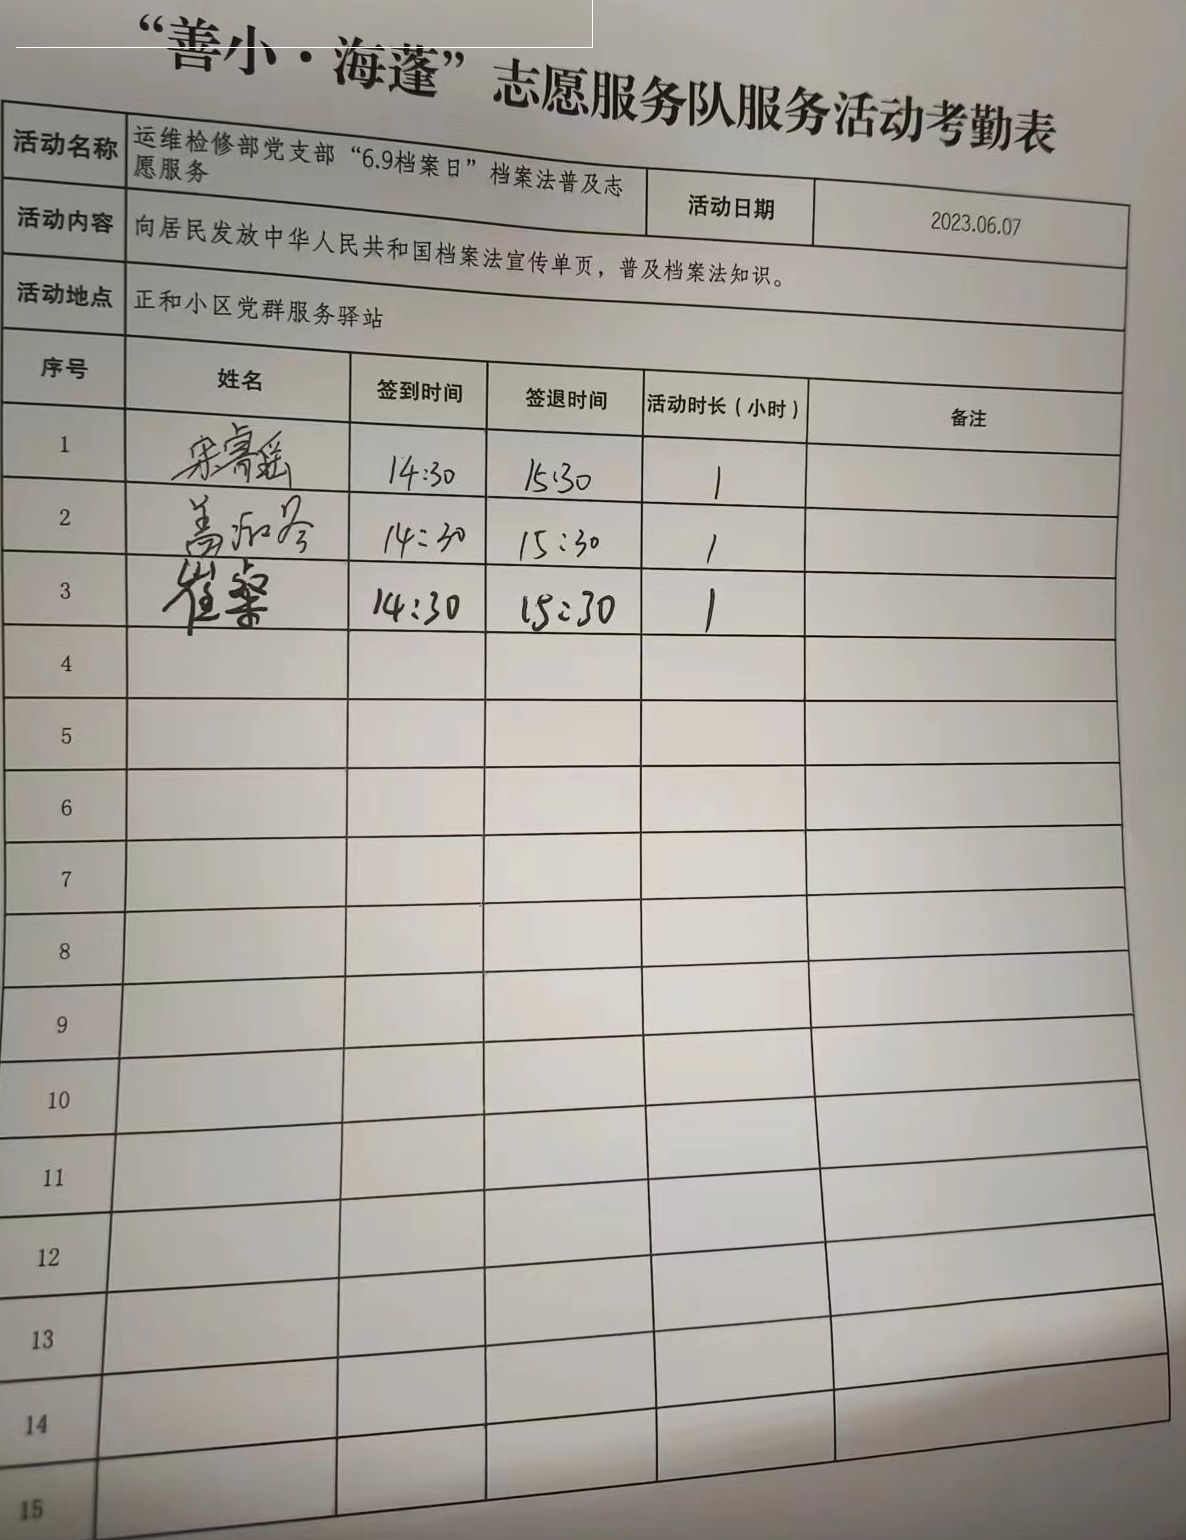 “善小·海蓬”志愿服务队服务活动考勤表
活动名称 运维检修部党支部“6.9档案日”档案法普及志
愿服务 活动日期 2023.06.07
活动内容 向居民发放中华人民共和国档案法宣传单页，普及档案法知识。
活动地点 正和小区党群服务驿站
序号 姓名 签到时间 签退时间 活动时长（小时） 备注
1 宋睿瑶 14:30 15:30 1
2 14:30 15:30 1
3 崔粲 14:30 15:30 1
4
5
6
7
8
9
10
11
12
13
14
15